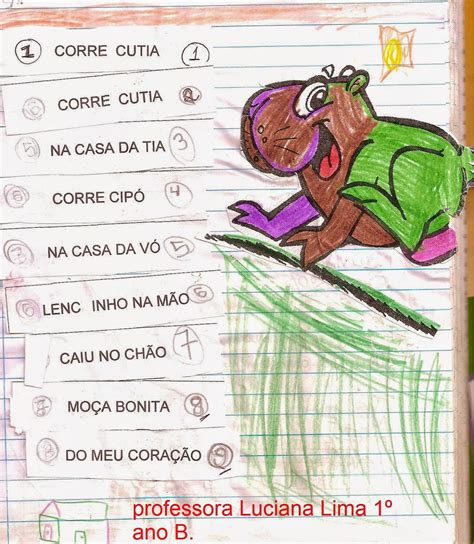 1 CORRE CUTIA 1
CORRE CUTIA 2
5 NA CASA DA TIA 3
6 CORRE CIPÓ 4
NA CASA DA VÓ 5
6 LENC INHO NA MÃO 6
CAIU NO CHÃO 7
8 MOÇA BONITA 8
8 DO MEU CORAÇÃO 9
professora Luciana Lima 1º
ano B.